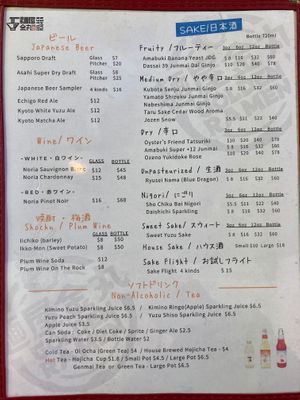 ビール
Japanese Beer
Sapporo Draft Glass $7
Pitcher $20
Asahi Super Dry Draft Glass $8
Pitcher $25
Japanese Beer Sampler 4 kinds $16
Echigo Red Ale $12
Kyoto White Yuzu Ale $12
Kyoto Matcha Ale $12
Wine/ワイン
-WHITE・白ワイン- GLASS BOTTLE
Noria Sauvignon Blanc $12 $45
Noria Chardonnay $12 $45
-RED・赤ワイン- GLASS BOTTLE
Noria Pinot Noir $16 $68
焼酎・梅酒
Shochu / Plum Wine
GLASS BOTTLE
Iichiko (barley) $8 $50
Ikko-Mon (Sweet Potato) $8 $50
Plum Wine Soda $12
Plum Wine On The Rock $8
SAKE/日本酒
Bottle 720ml
Fruity / フルーティー 3oz 6oz 12oz Bottle
Amabuki Banana Yeast JDG $8 $16 $32 $60
Dassai 39 Junmai Dai Ginjo
Medium Dry / やや辛口 3oz 6oz 12oz Bottle
Kubota Senju Junmai Ginjo
Yamato Shizuku Junmai Ginjo
Nabeshima Junmai Ginjo
Taru Sake Cedar Wood Aroma
Jozen Snow
Dry / 辛口 3oz 6oz 12oz Bottle
Oyster's Friend Tatsuriki
Amabuki Super +12 Junmai
Ozeno Yukidoke Rose
Unpasteurized / 生酒 3oz 6oz 12oz Bottle
Ryusei Nama (Blue Dragon) $8 $16 $32 $60
Nigori / にごり 3oz 6oz 12oz Bottle
Sho Chiku Bai Nigori
Daishichi Sparkling
Sweet Sake / スウィート 3oz 6oz 12oz Bottle
Sweet Yuzu Sake $8 $16 $32 $60
House Sake / ハウス酒 Small $10 Large $18
Sake Flight / お試しフライト
Sake Flight 4 kinds $15
ソフトドリンク
Non-Alcoholic / Tea
Kimino Yuzu Sparkling Juice $6.5 / Kimino Ringo(Apple) Sparkling Juice $6.5
Yuzu Peach Sparkling Juice $6.5 / Yuzu Shiso Sparkling Juice $6.5
Apple Juice $3.5
Can Soda : Coke / Diet Coke / Sprite / Ginger Ale $2.5
Sparkling Water $3.5 / Bottle Water $2
Cold Tea - Oi Ocha (Green Tea) $4 / House Brewed Hojicha Tea $4
Hot Tea - Hojicha Cup $1.8 / Small Pot $4.5 / Large Pot $6.5
Genmai Tea or Green Tea - Large Pot $6.5